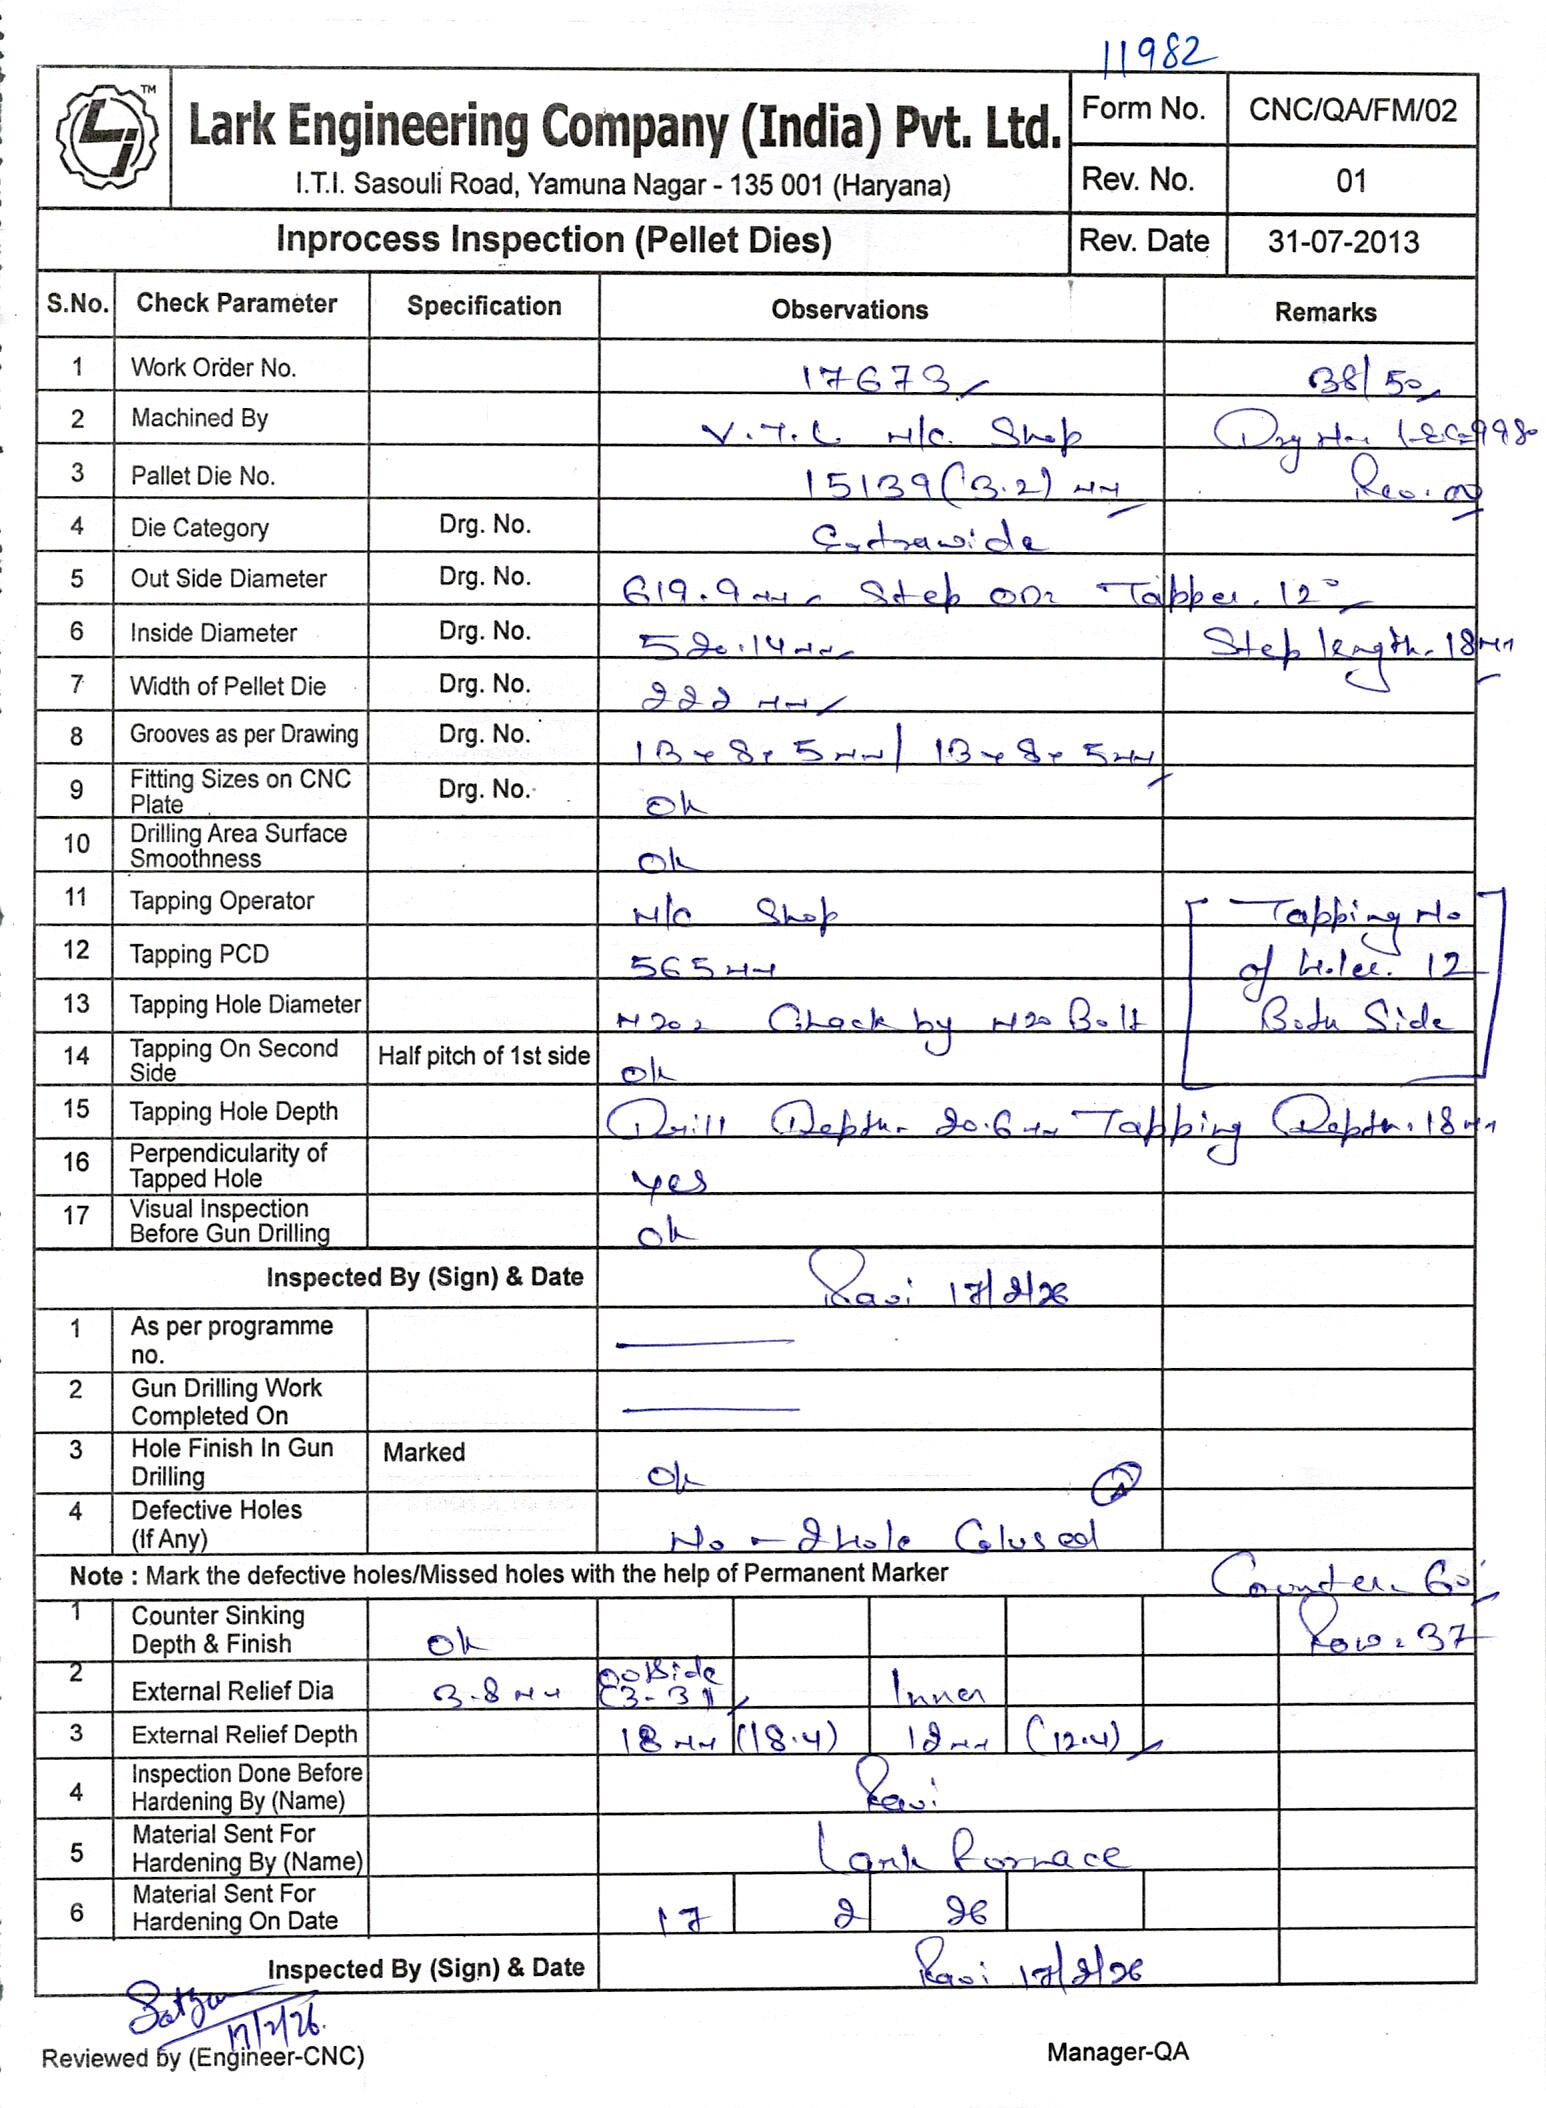 11982
TM
Lark Engineering Company (India) Pvt. Ltd.
I.T.I. Sasouli Road, Yamuna Nagar - 135 001 (Haryana)
Form No. CNC/QA/FM/02
Rev. No. 01
Inprocess Inspection (Pellet Dies) Rev. Date 31-07-2013
S.No. Check Parameter Specification Observations Remarks
1 Work Order No. 17673 38/50
2 Machined By V.T.L M/C. Shop Drg No. LEC-998
3 Pallet Die No. 15139 (3.2) mm Rev.
4 Die Category Drg. No. Extrawide
5 Out Side Diameter Drg. No. 619.9mm Step OD= Tapper. 12°
6 Inside Diameter Drg. No. 520.14mm Step length. 18mm
7 Width of Pellet Die Drg. No. 222 mm
8 Grooves as per Drawing Drg. No. 13x8x5mm/ 13x8x5mm
9 Fitting Sizes on CNC Plate Drg. No. Ok
10 Drilling Area Surface Smoothness Ok
11 Tapping Operator M/C Shop Tapping No
12 Tapping PCD 565mm of Holes. 12
13 Tapping Hole Diameter M20= Check by M20 Bolt Both Side
14 Tapping On Second Side Half pitch of 1st side Ok
15 Tapping Hole Depth Drill Depth. 20.6mm Tapping Depth. 18mm
16 Perpendicularity of Tapped Hole Yes
17 Visual Inspection Before Gun Drilling Ok
Inspected By (Sign) & Date Ravi 17/2/26
1 As per programme no.
2 Gun Drilling Work Completed On
3 Hole Finish In Gun Drilling Marked Ok
4 Defective Holes (If Any) No - 2 hole Colused
Note : Mark the defective holes/Missed holes with the help of Permanent Marker Counter. 60°
1 Counter Sinking Depth & Finish Ok Row = 37
2 External Relief Dia 3.8mm OutSide (3-3) Inner
3 External Relief Depth 18mm (18.4) 12mm (12.4)
4 Inspection Done Before Hardening By (Name) Ravi
5 Material Sent For Hardening By (Name) Lark Fornace
6 Material Sent For Hardening On Date 17 2 26
Inspected By (Sign) & Date Ravi 17/2/26
17/2/26.
Reviewed by (Engineer-CNC) Manager-QA